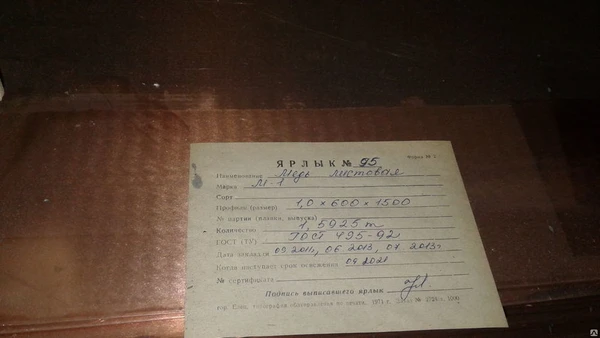 Форма № 2
ЯРЛЫК № 95
Наименование Медь листовая
Марка М-1
Сорт
Профиль (размер) 1,0 × 600 × 1500
№ партии (плавки, выпуска)
Количество 1,5925 т
ГОСТ (ТУ) ГОСТ 495-92
Дата закладки 09.2011, 06.2013, 07.2013г
Когда наступает срок освежения 09.2021
№ сертификата
Подпись выписавшего ярлык
1971 г.